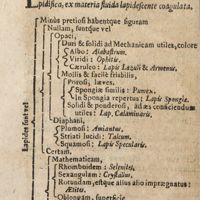 Lapidifica, ex materia fluida lapidescente coagulata.
Minùs pretiosi habentque figuram
Nullam, suntque vel
Opaci,
Duri & solidi ad Mechanicam utiles, colore
Albo: Alabastrum.
Viridi: Ophitis.
Cæruleo: Lapis Lazuli & Armenie.
Mollis & facilè friabilis,
Porosi, læves.
Spongiæ similis: Pumex.
In Spongia repertus: Lapis Spongiæ.
Solidi & ponderosi, ad æs conciendum
utiles: Lap. Calaminaris.
Diaphani,
Plumosi: Amiantus.
Striati lucidi: Talcum.
Squamosi: Lapis Specularis.
Certam,
Mathematicam,
Rhomboidem: Selenites,
Sexangulam: Crystallus.
Rotundam, estque alius alio imprægnatus:
Ætites.
Oblongam, superficie
Lapides sunt vel